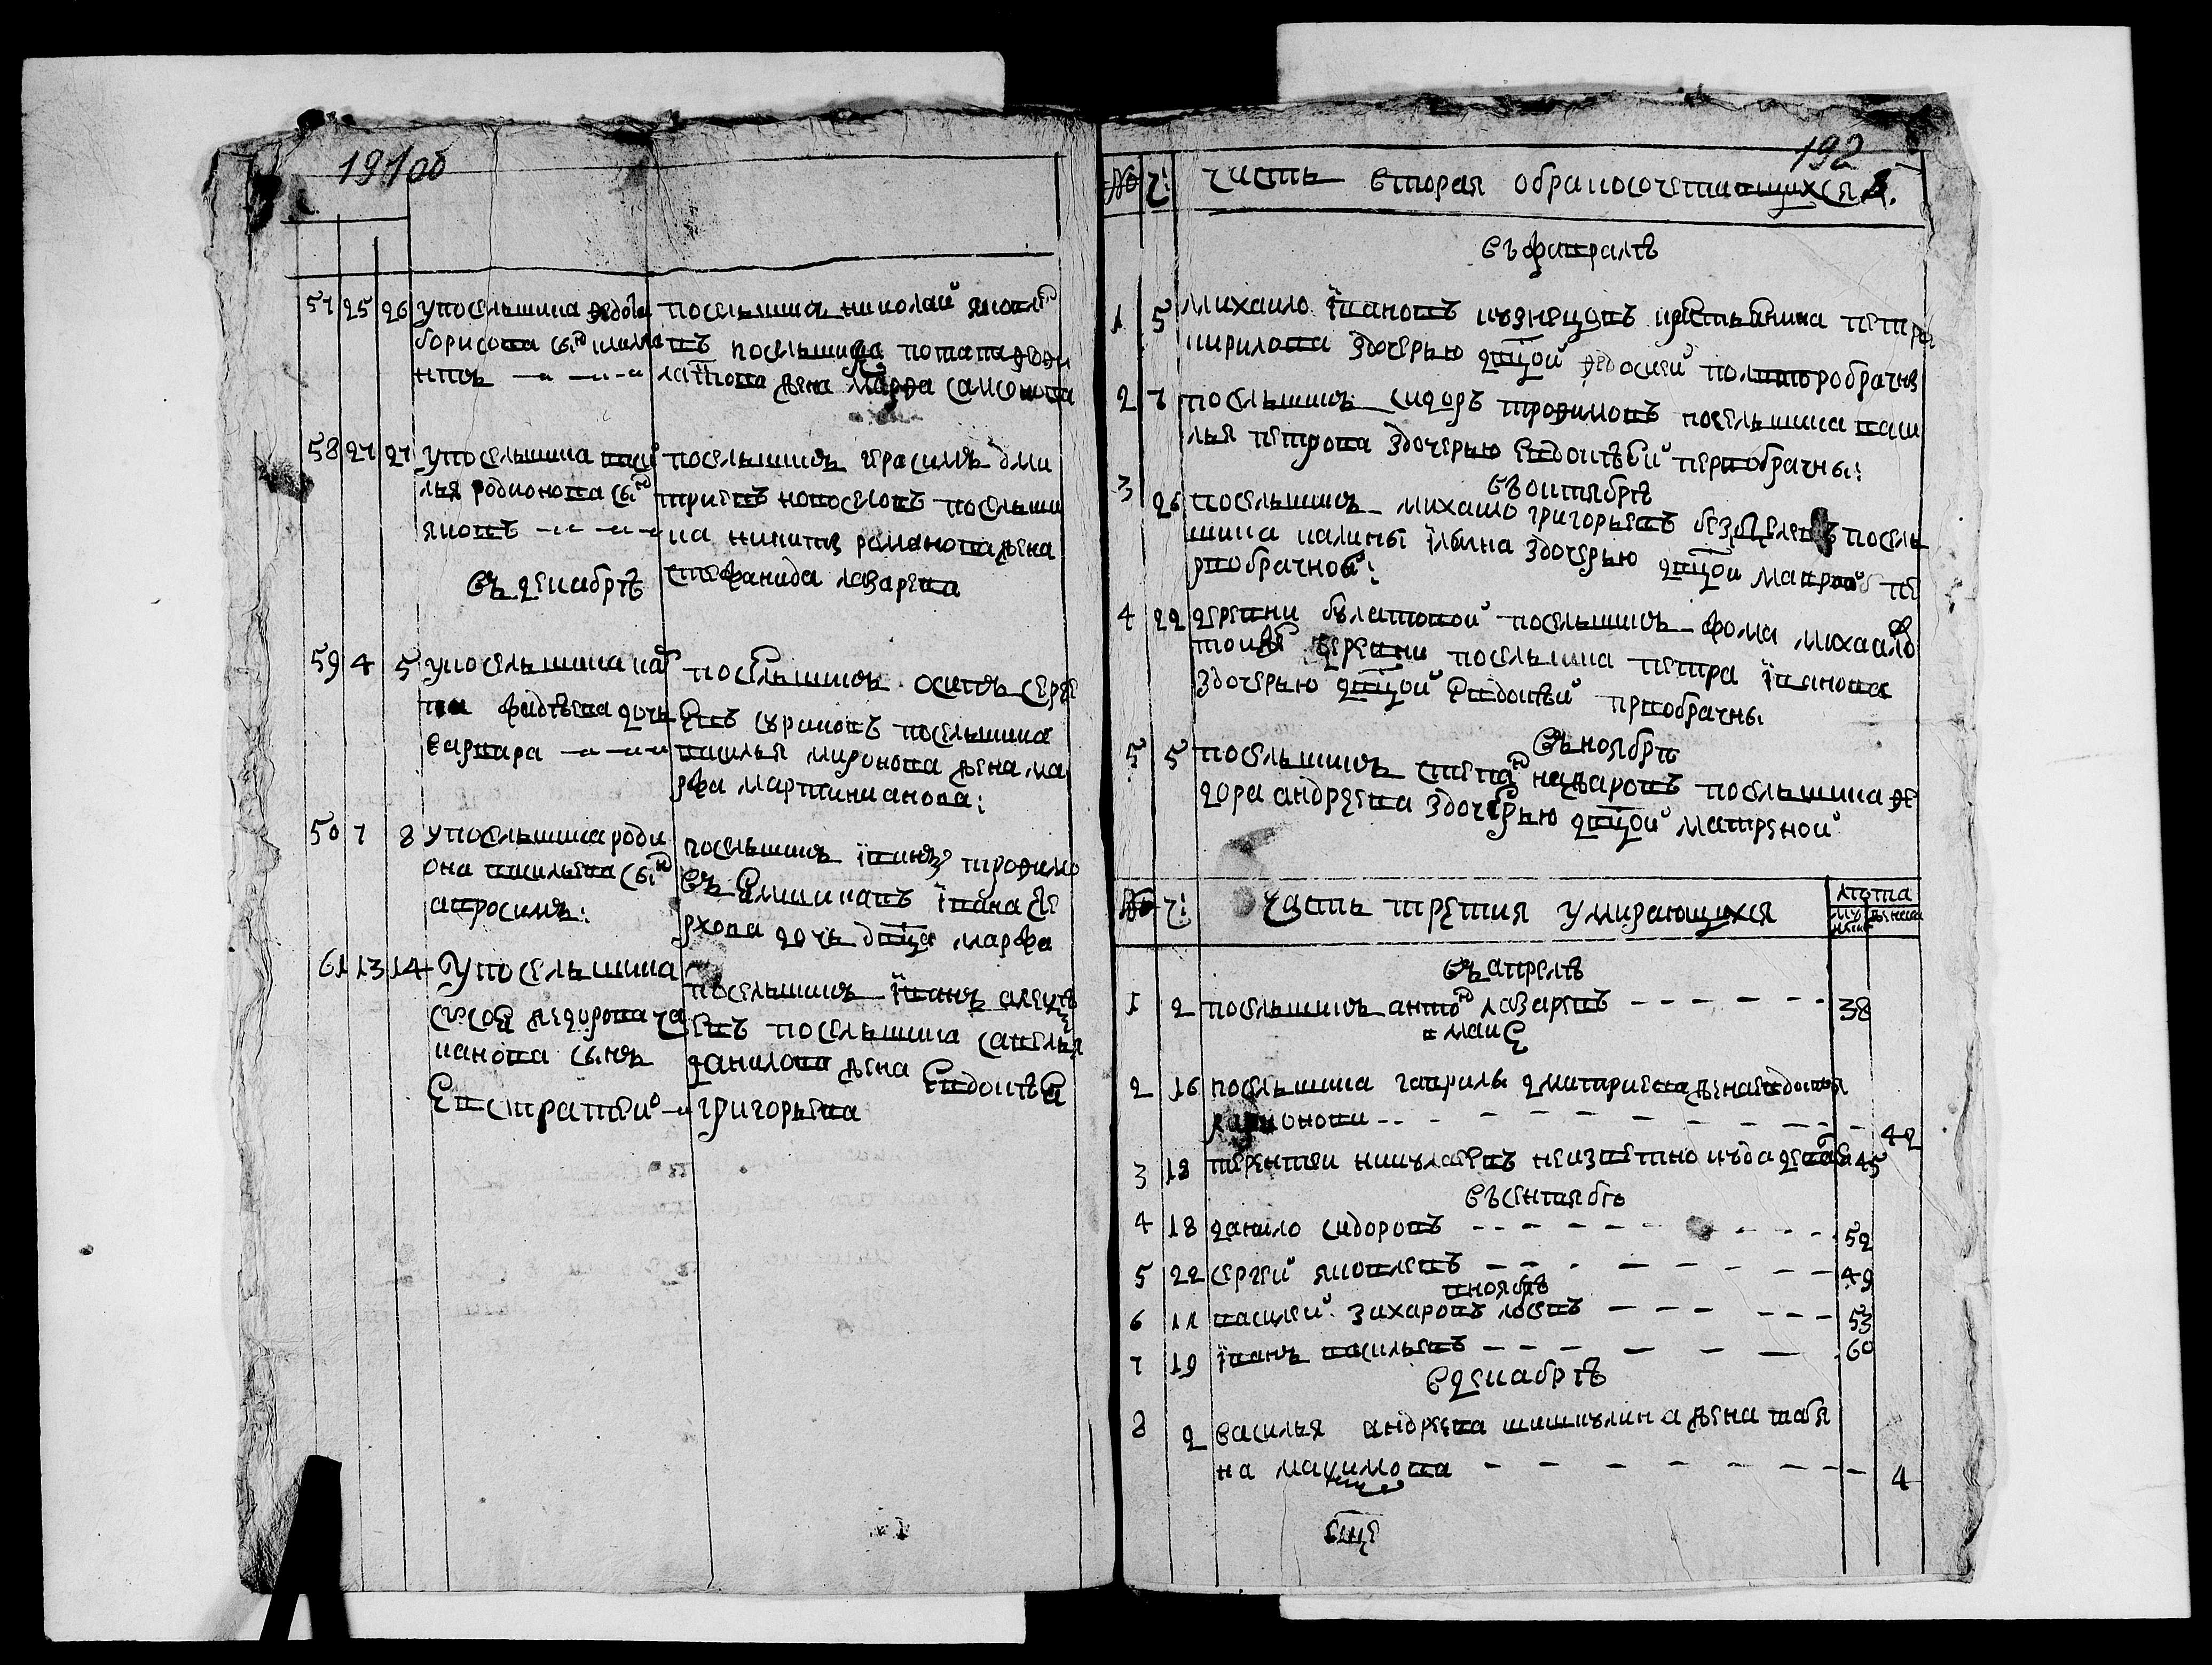 191об
57 25 26 упосельшика федота
бориса сы[н] климе
нтъ
посельшикъ николай яковле
въ посельшика потапа родм
латного жена марѳа самсонова
58 27 27 упосельшика васи
лья родионова сынъ
яковъ
посельшикъ герасимъ дми
триевъ новоселовъ посельши
ка никиты романова жена
стефанида лазарева
въ декабрѣ
59 4 5 упосельшика кар
па фадѣева дочь
варвара
посельшикъ осипъ серге
евъ суриковъ посельшика
василья миронова жена ма
рфа мартинианова:
50 7 8 упосельшика роди
она васильева сынъ
амросимъ:
посельшикъ іванъ трофимо
въ ївана
рхова дочь дѣвица марфа
61 13 14 Упосельшика
федорова ка
занова сынъ
Евстратей
посельшикъ іванъ алексѣ
евъ посельшика савелья
данилова жена Евдокѣя
григорьева
192
№ ч: часть вторая обракосочетающихся
въ февралѣ
1 5 михаило івановъ кузнецовъ крестьянина петра
кирилова здочерью дѣвцой федосией полвторобрачны
2 7 посельшикъ сидоръ трофимовъ посельшика васи
лья петрова здочерью Евдокѣей первобрачны:
въ октябрѣ
3 26 посельшикъ михаило григорьевъ посель
шика калины ільина здочерью дѣвцой маврой пе
рвобрачной:
4 22 деревни булатовой посельшикъ фома михаило
тойже деревни посельшика петра іванова
здочерью дѣвцой Евдокѣей првобрачны
въ ноябрѣ
5 5 посельшикъ степанъ назаровъ посельшика фе
дора андреева здочерью дѣвцой матреной
№ ч: часть третия умирающихся
лѣта
муженска женска
въ апрелѣ
1 2 посельшикъ антонъ лазаревъ 38
в маие
2 16 посельшика гаврилы дмитриева жена евдокѣя
42
3 18 терентеи никулаевъ неизвестно куда 45
въ сентябрѣ
4 18 данило сидоровъ 52
5 22 сергей яковлевъ 49
в ноябрѣ
6 11 василей захаровъ 53
7 19 іванъ васильевъ 60
в декабрѣ
8 2 василья андреева шишкулина жена татья
на макимова 4